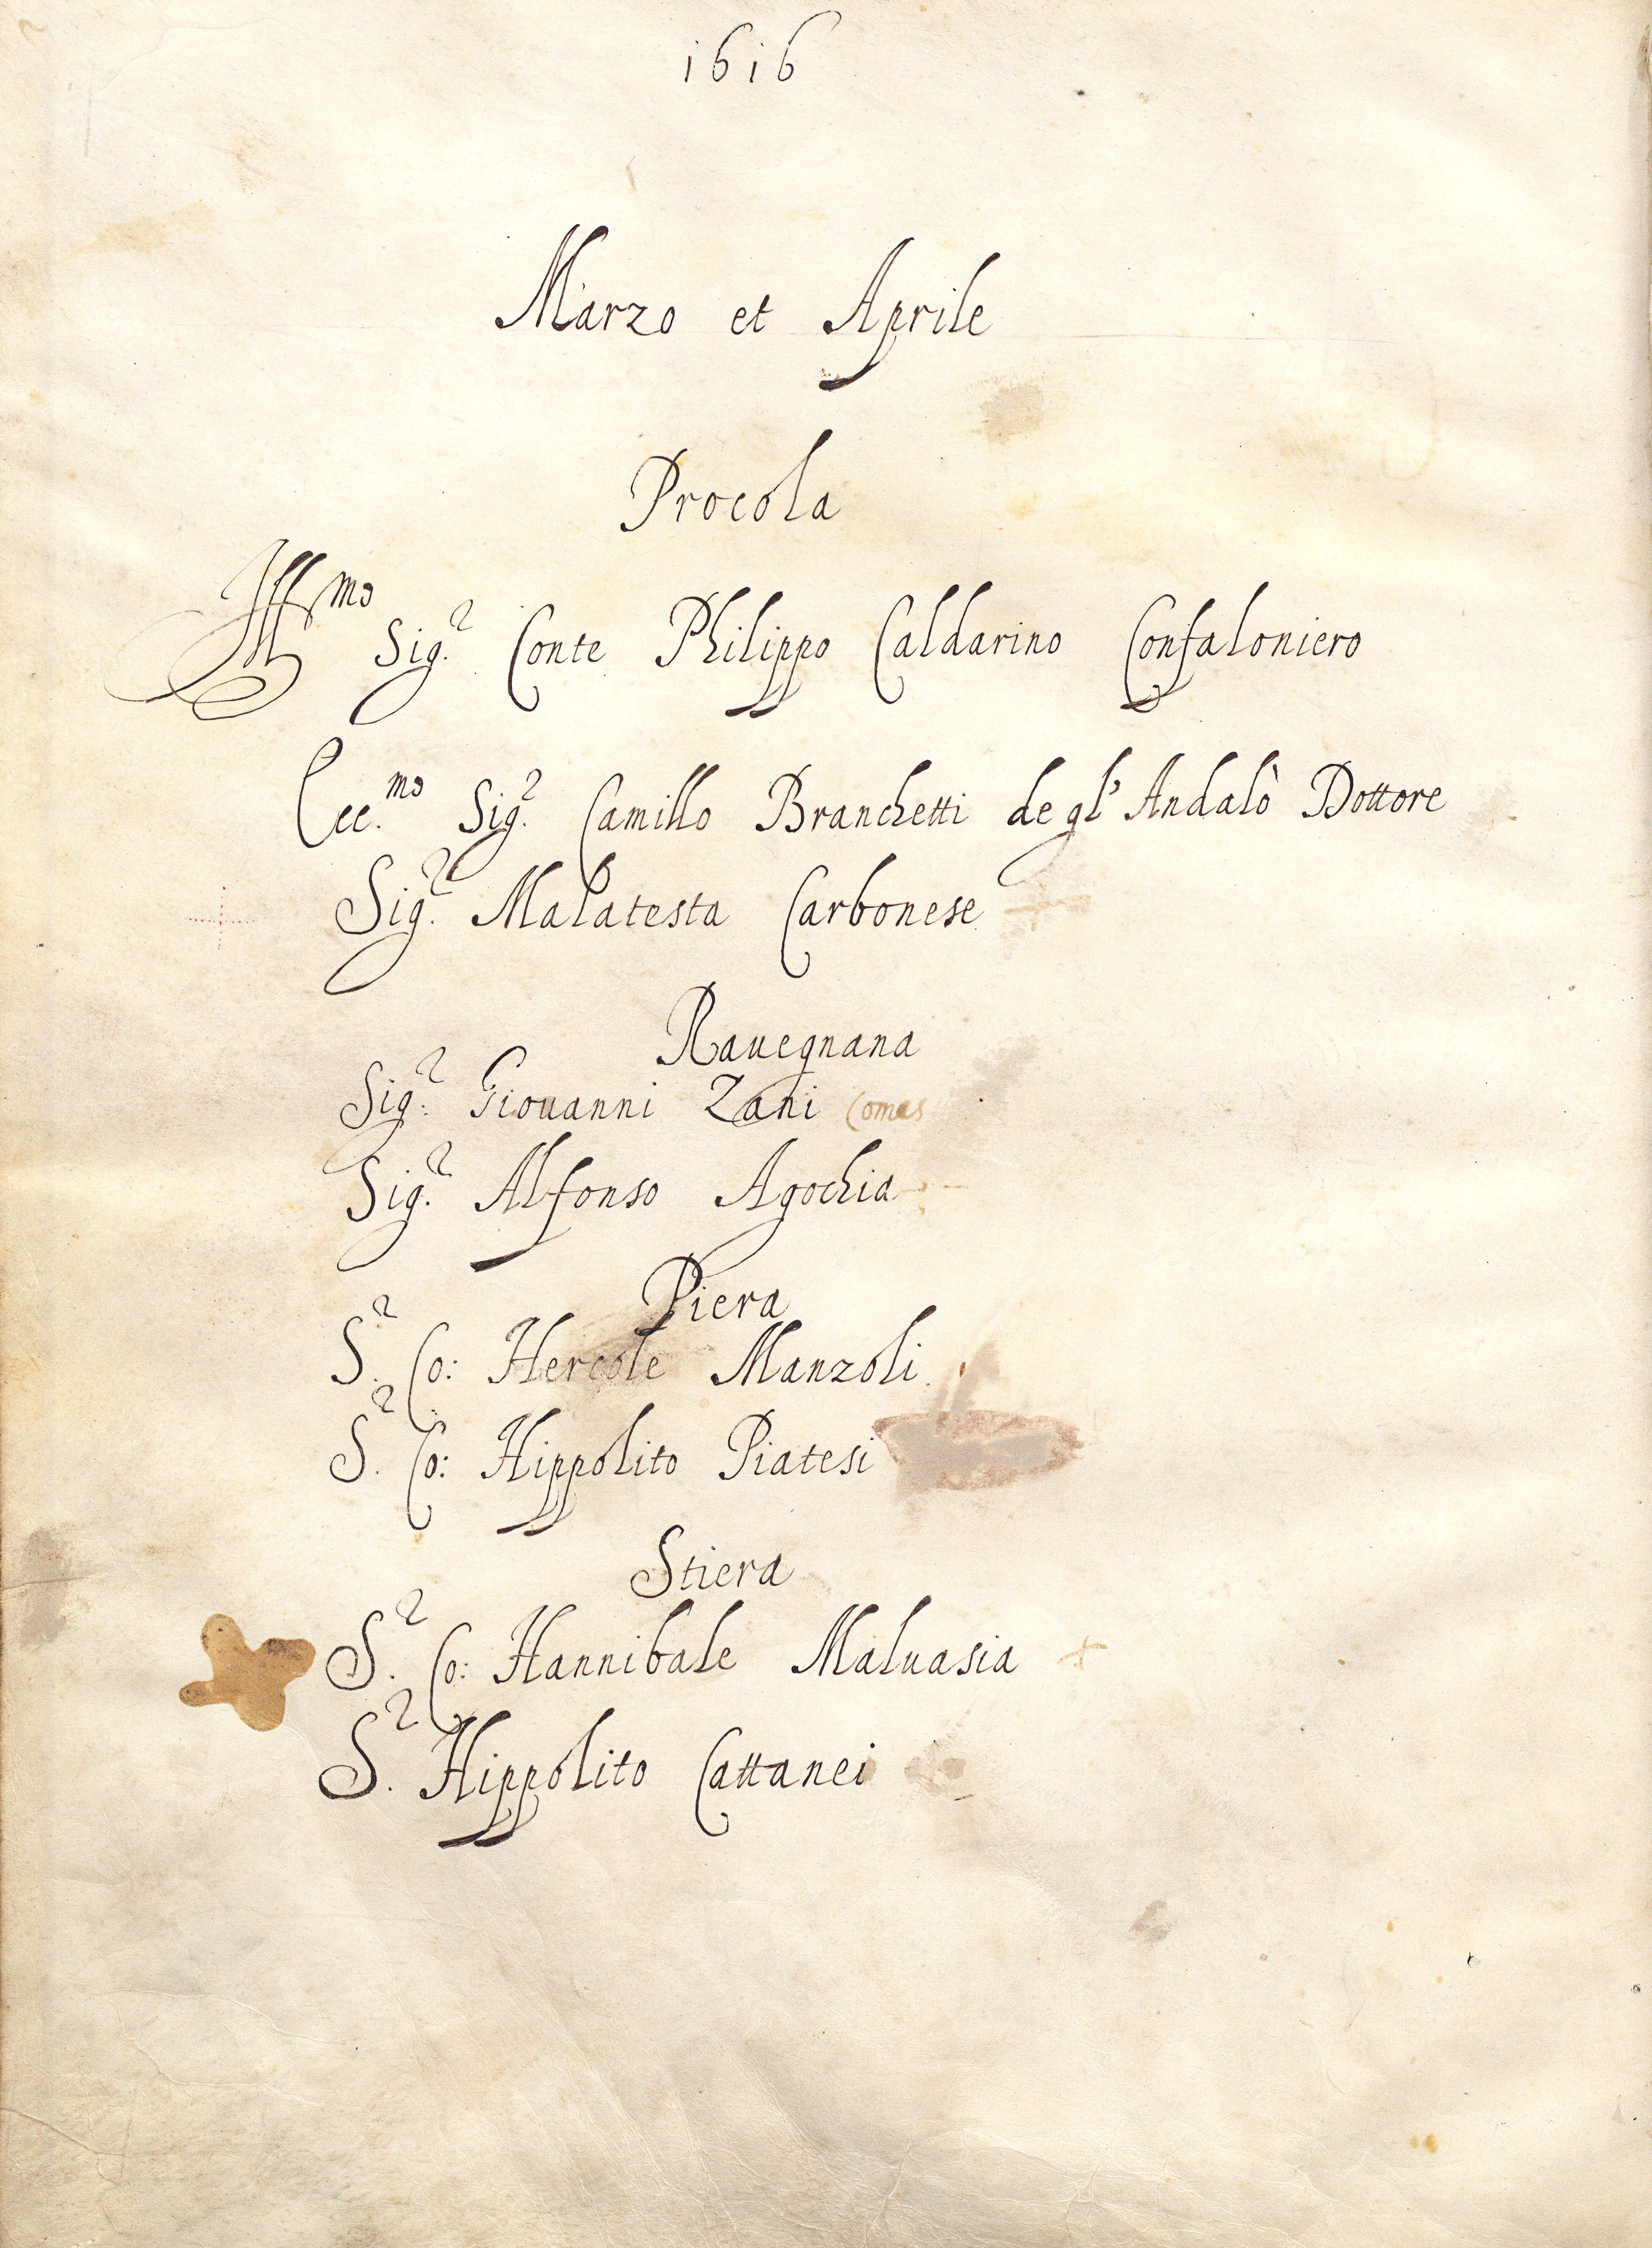 1616
Marzo et Aprile
Procola
Ill.mo Sig.r Conte Philippo Caldarino Confaloniero
Ecc.mo Sig.r Camillo Branchetti de gl' Andalò Dottore
Sig.r Malatesta Carbonese
Rauegnana
Sig.r Giouanni Zani Comes
Sig.r Alfonso Agochia
Piera
S.r Co: Hercole Manzoli
S.r Co: Hippolito Piatesi
Stiera
S.r Co: Hannibale Maluasia
S.r Hippolito Cattanei